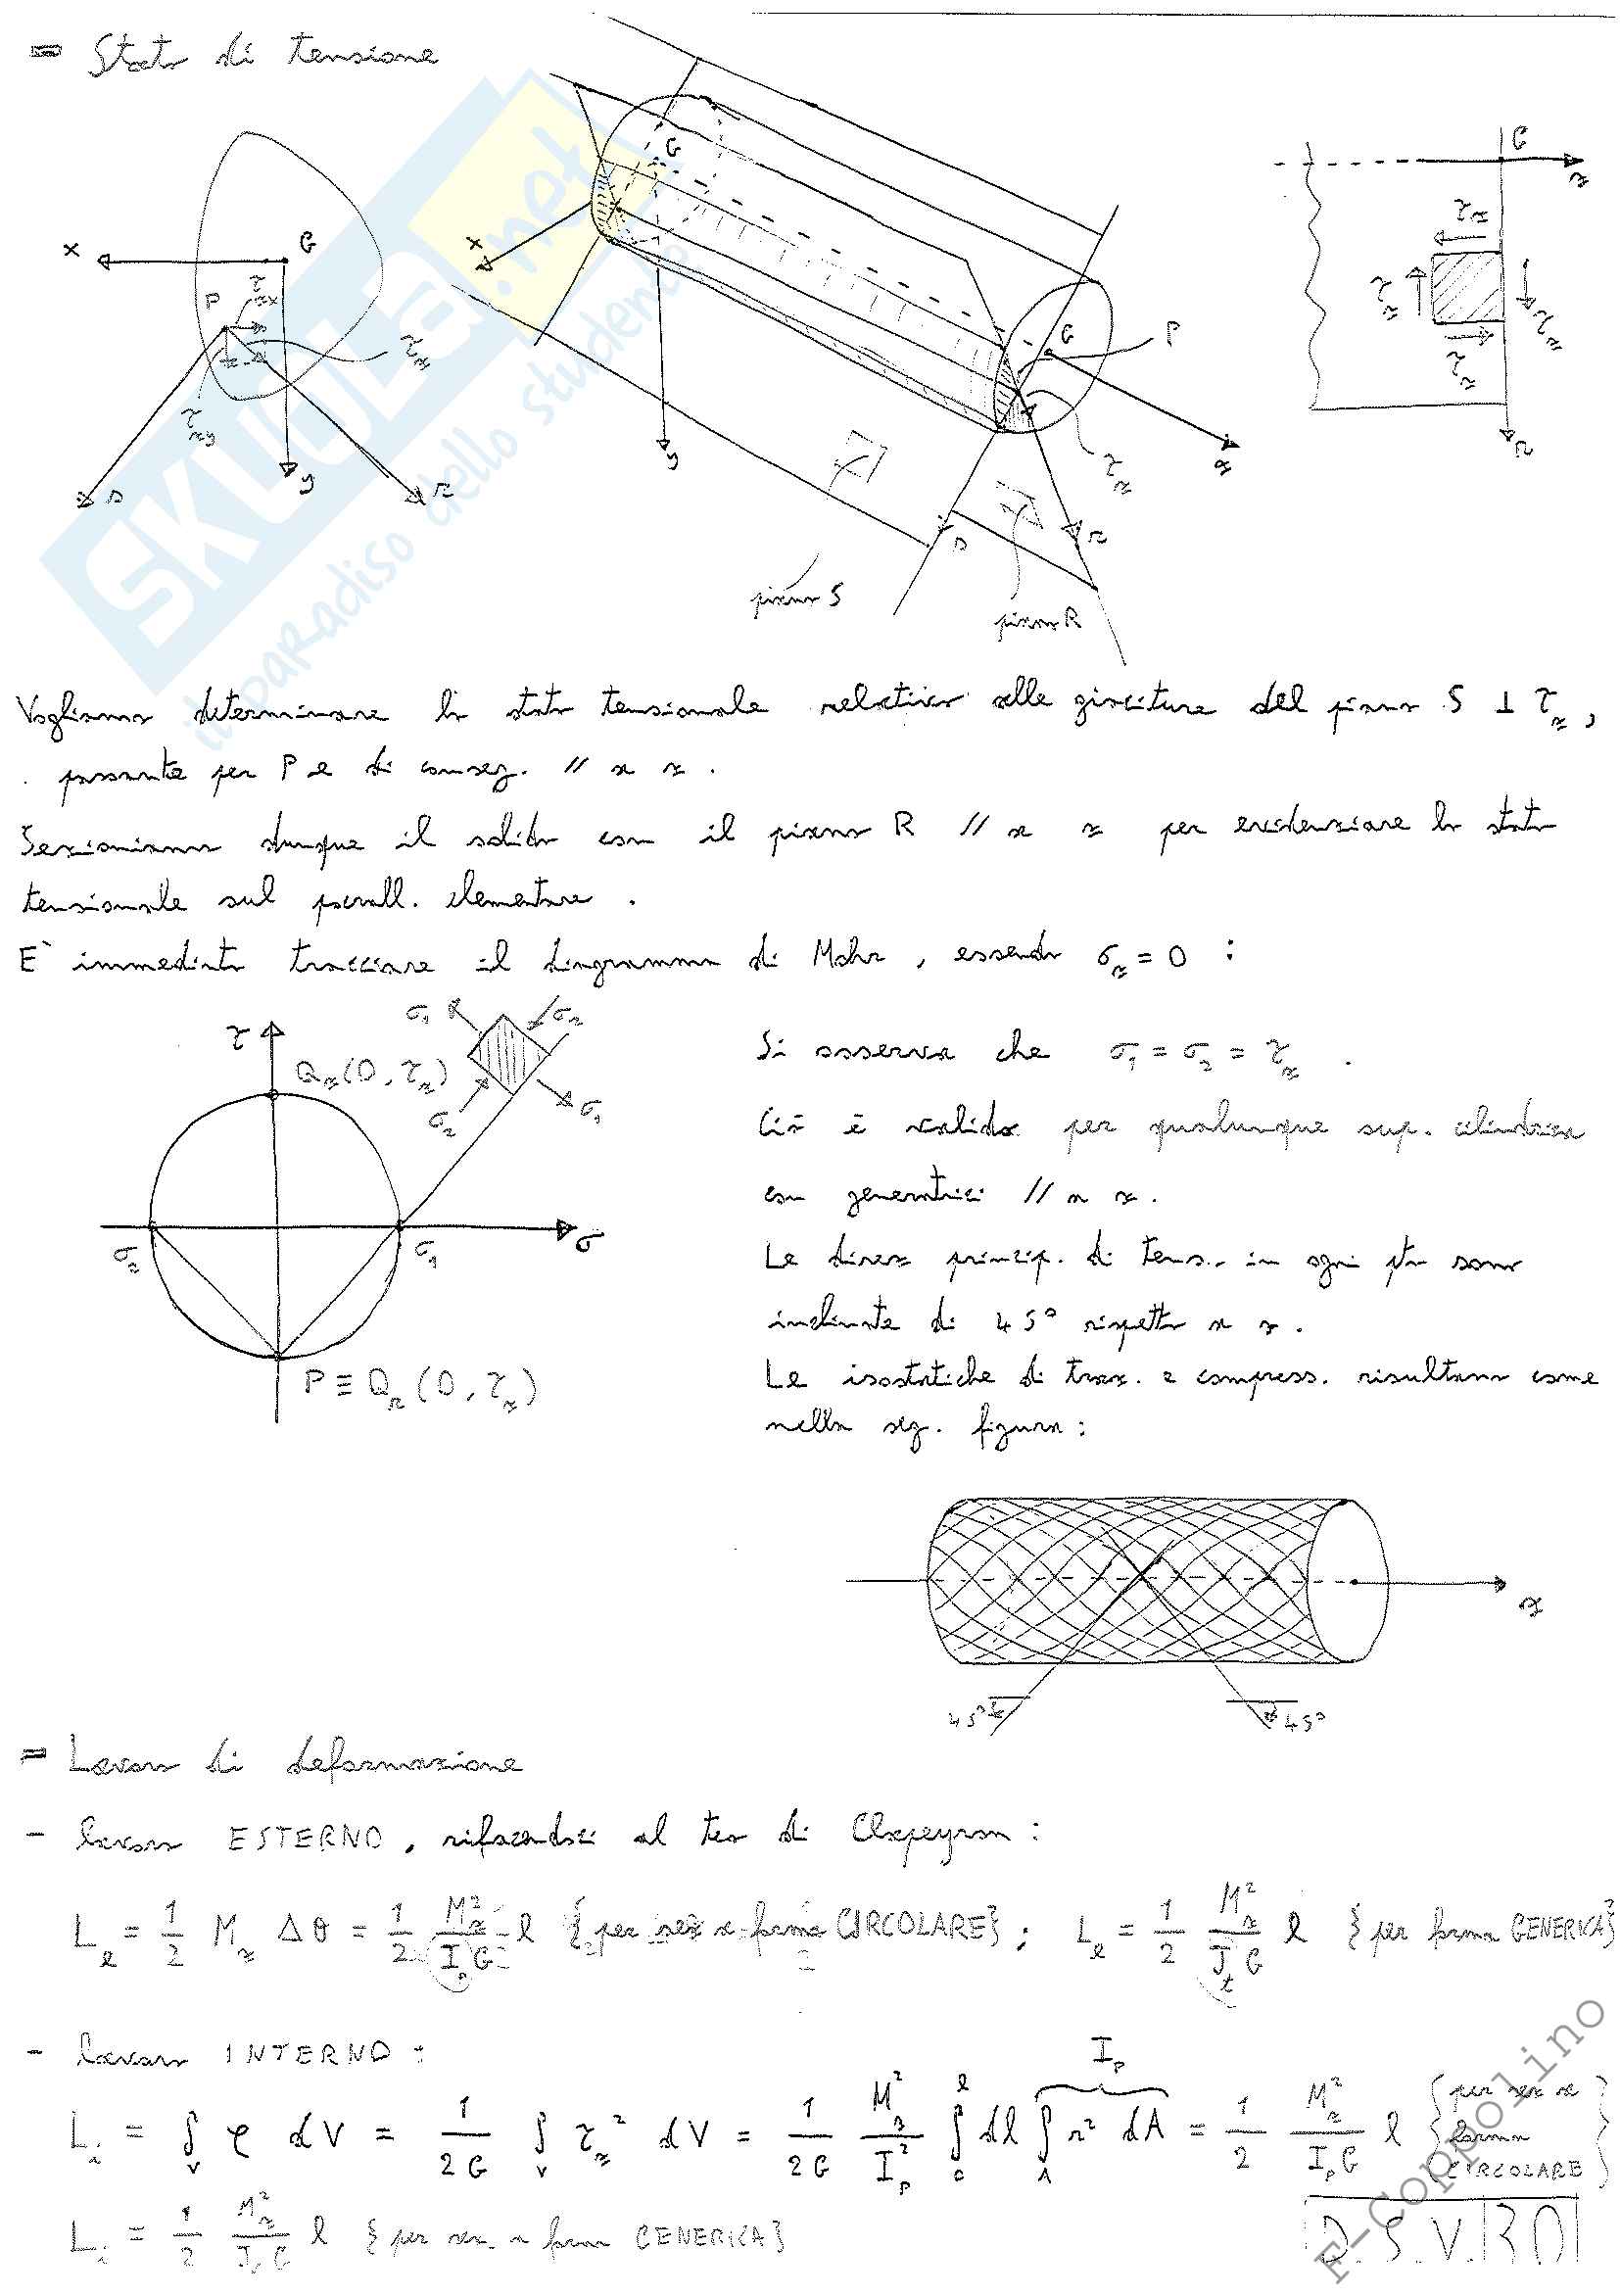 = Stato di tensione
x
G
P
τzx
τz
τzy
s
y
r
x
G
G
P
y
z
τz
s
r
piano S
piano R
G
z
τz
τz
τz
τz
r
Vogliamo determinare lo stato tensionale relativo alle giaciture del piano S ⊥ τz,
passante per P e di conseg. // a z.
Sezioniamo dunque il solido con il piano R // a z per evidenziare lo stato
tensionale sul parall. elementare.
E` immediato tracciare il diagramma di Mohr, essendo σz = 0 :
τ
Qz(0, τz)
σ1
σ2
σ2
σ1
σ2
σ1
σ
P ≡ Qr(0, τz)
Si osserva che σ1 = σ2 = τz .
Ciò è valido per qualunque sup. cilindrica
con generatrici // a z.
Le direz princip. di tens. in ogni pto sono
inclinate di 45° rispetto a z.
Le isostatiche di traz. e compress. risultano come
nella seg. figura:
z
45°
45°
= Lavoro di deformazione
- lavoro ESTERNO, rifacendoci al teo di Clapeyron:
Le = 1/2 Mz Δθ = 1/2 Mz²/(Ip G) l {per sez a forma CIRCOLARE}; Le = 1/2 Mz²/(Jt G) l {per forma GENERICA}
- lavoro INTERNO:
Li = ∫V φ dV = 1/2G ∫V τz² dV = 1/2G Mz²/Ip² ∫0l dl ∫A r² dA = 1/2 Mz²/(Ip G) l {per sez a forma CIRCOLARE}
Ip
Li = 1/2 Mz²/(Jt G) l {per sez. a forma GENERICA}
Q.S.V. 130
SKUOLA.net
il paradiso dello studente
F-Coppolino